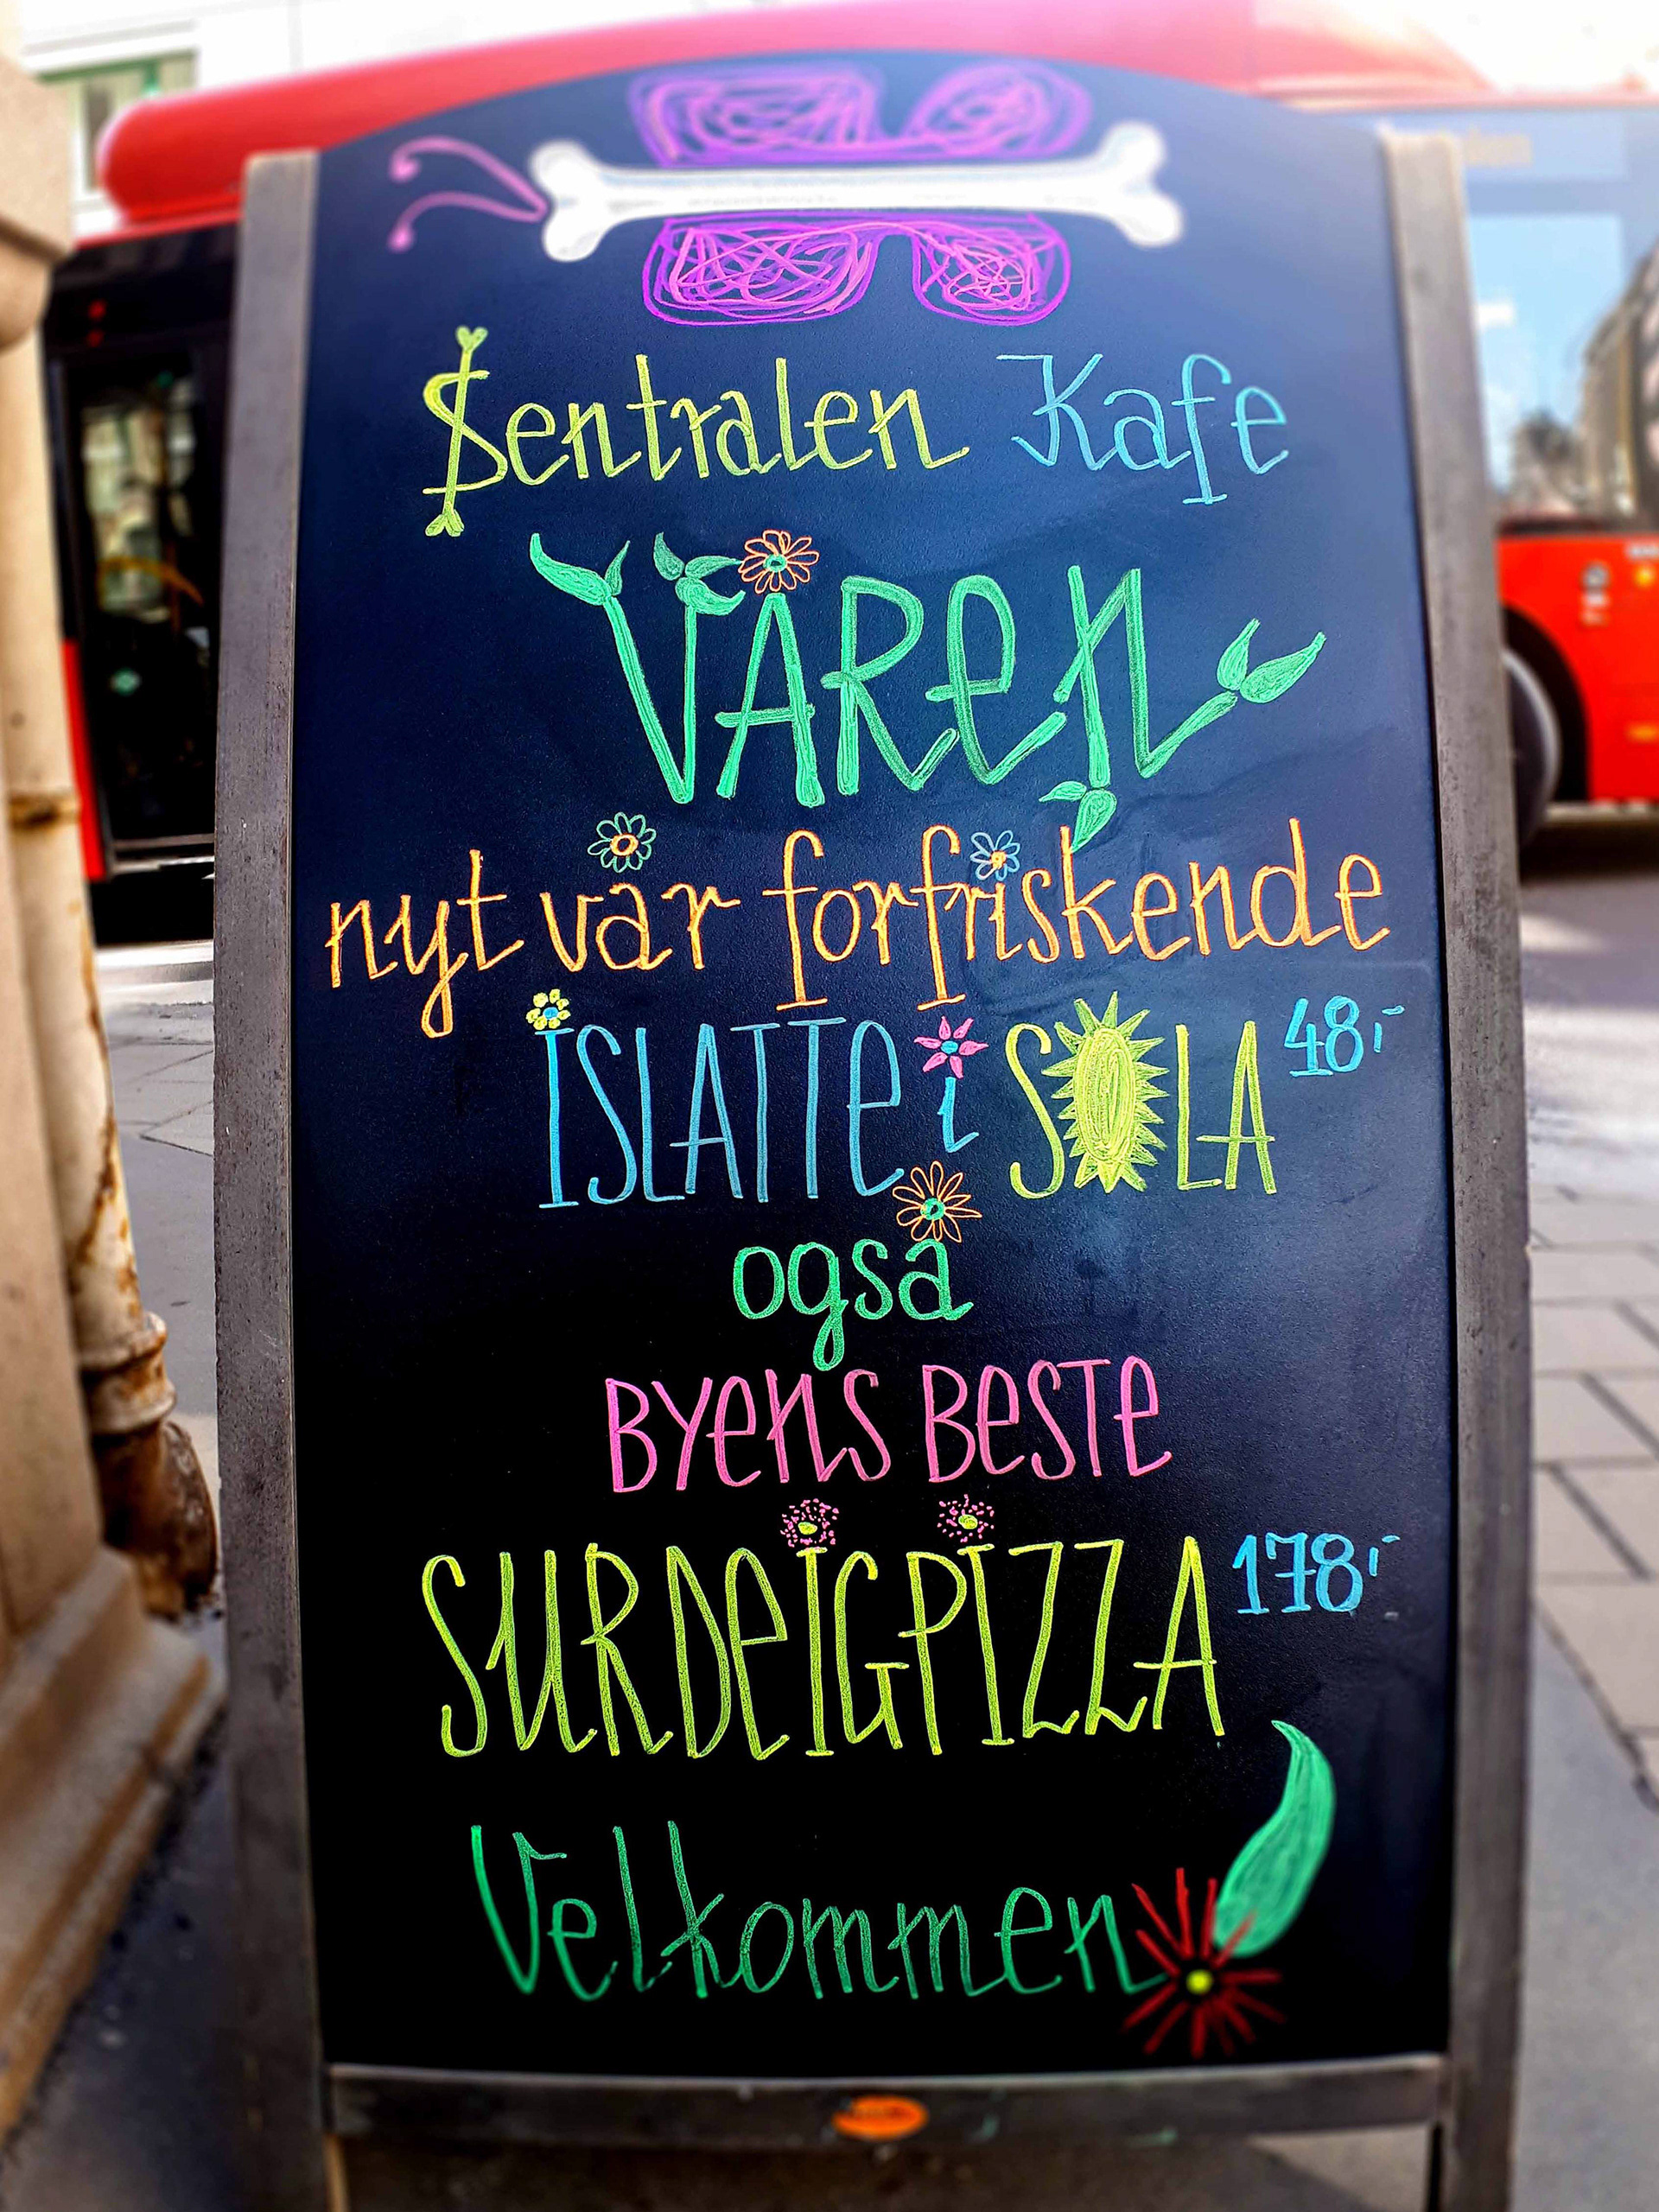 Sentralen Kafe
VÅREN
nyt vår forfriskende
ISLATTE i SOLA 48,-
også
BYENS BESTE
SURDEIGPIZZA 178,-
Velkommen